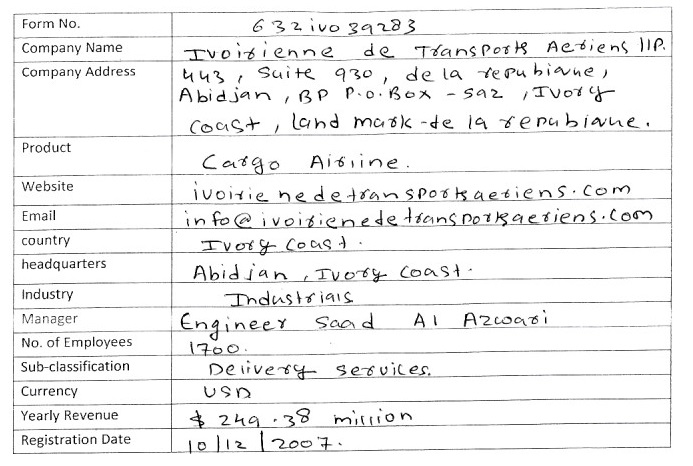 Form No. 632ivo39283
Company Name Ivoirienne de Transports Aeriens llP.
Company Address 443, Suite 930, de la republique,
Abidjan, BP P.o.Box - 592, Ivory
Coast, land mark - de la republique.
Product Cargo Airline.
Website ivoirienedetransportsaeriens.com
Email info@ivoirienedetransportsaeriens.com
country Ivory Coast.
headquarters Abidjan, Ivory Coast.
Industry Industrials
Manager Engineer Saad Al Azwari
No. of Employees 1700.
Sub-classification Delivery services.
Currency USD
Yearly Revenue $ 249.38 million
Registration Date 10/12/2007.